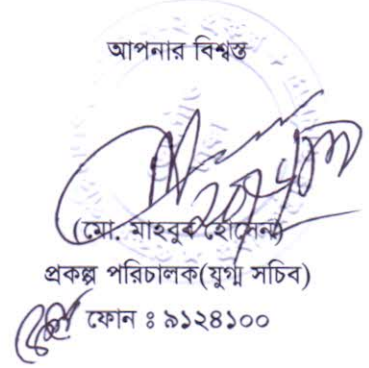 আপনার বিশ্বস্ত
(মো. মাহবুব হোসেন)
প্রকল্প পরিচালক(যুগ্ম সচিব)
ফোন ঃ ৯১২৪১০০